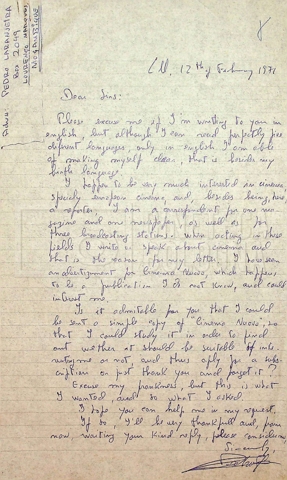 PEDRO LARANJEIRA
BOX 2049
LOURENCO MARQUES,
MOÇAMBIQUE
LM, 12th of February 1971
Dear Sirs:
Please excuse me if I'm writing to you in
english, but although I can read perfectly five
diferent languages, only in english I am able
of making myself clear. that is besides my
birth language.
I happen to be very much interested in cinema,
specialy european cinema, and, besides being, here
a reporter, I am a correspondent for one ma-
gazine and one newspaper, as well as for
three broadcasting stations: when acting in these
fields I write or speak about cinema and
that is the reason for my letter. I have seen
an advertisment for Cinema Nuovo, which happens
to be a publication I do not know, and could
interest me.
Is it admitable for you that I could
be sent a simple copy of "Cinema Nuovo", so
that I could study it in order to find
out weather it should be suitable of inte-
resting me or not, and thus aply for a subs-
cription or just thank you and forget it?
Excuse my frankness, but this is what
I wanted, and so what I asked.
I hope you can help me in my request.
If so, I'll be very thankfull and, from
now, waiting your kind reply, please consider me,
Sincerely,